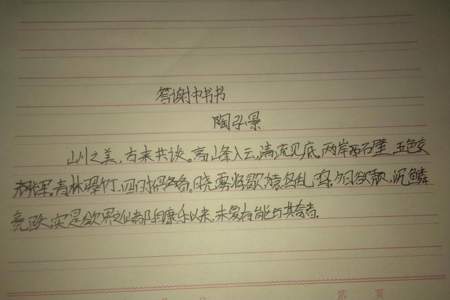 答谢中书书
陶弘景
山川之美,古来共谈。高峰入云,清流见底。两岸石壁,五色交
辉。青林翠竹,四时俱备。晓雾将歇,猿鸟乱鸣;夕日欲颓,沉鳞
竞跃。实是欲界之仙都。自康乐以来,未复有能与其奇者。